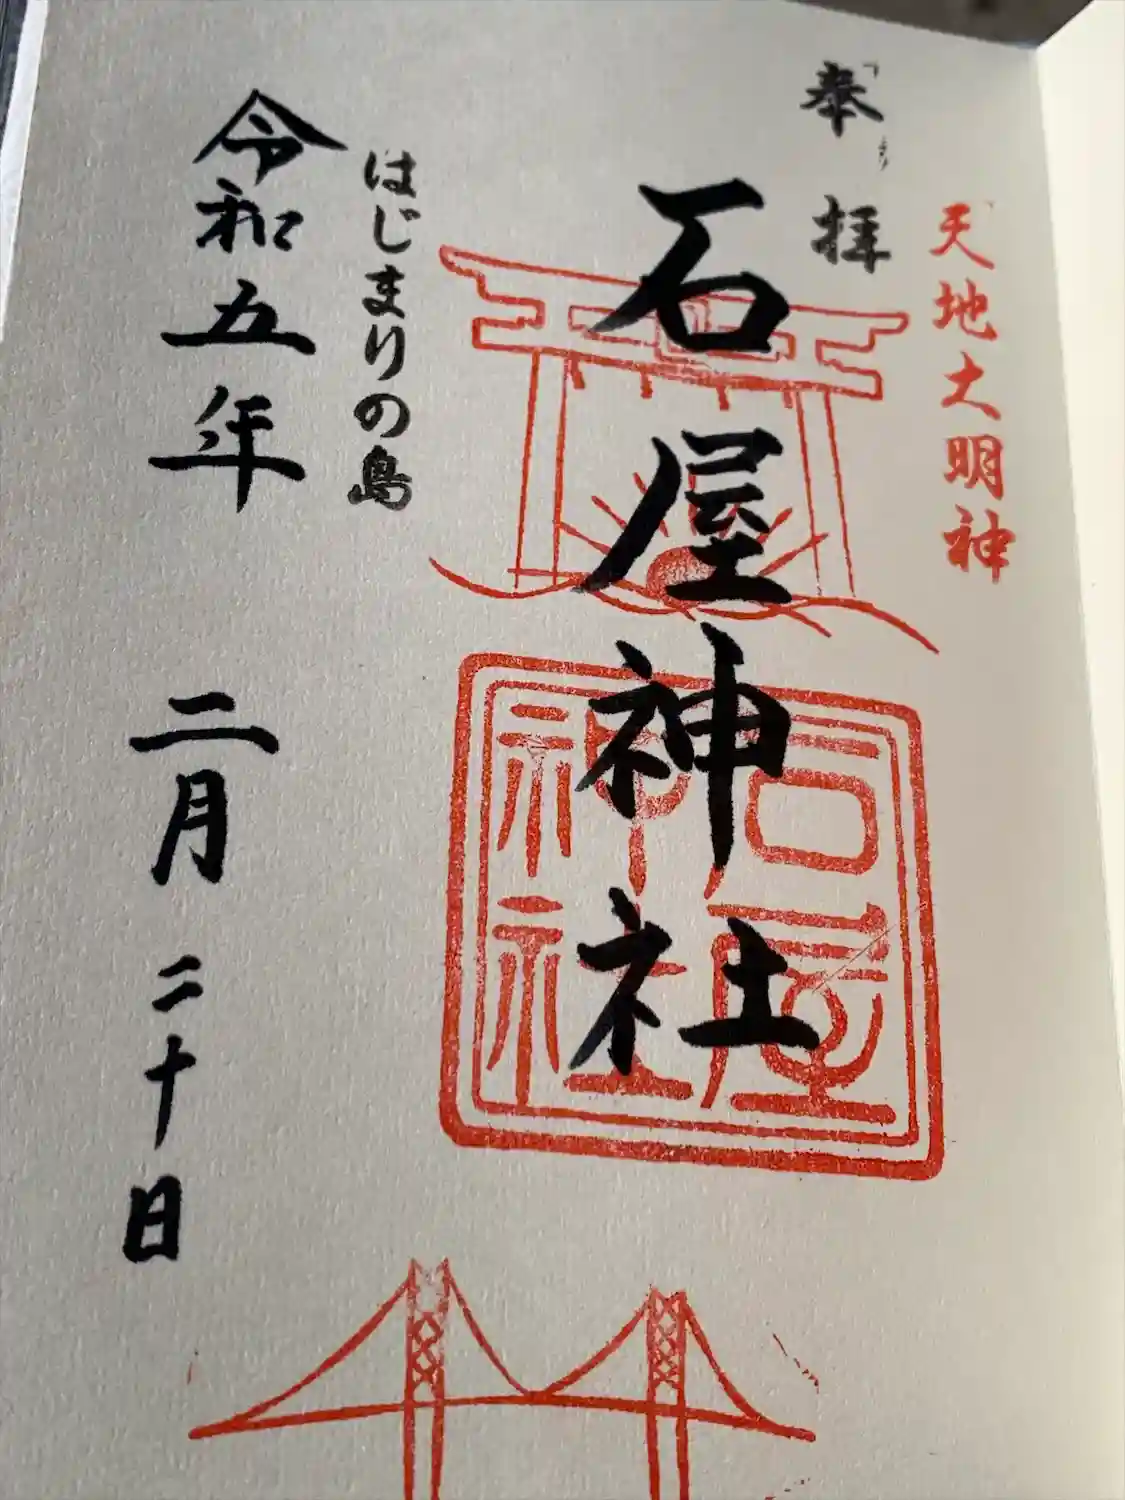 天地大明神
奉拝
石屋神社
石屋
神社
はじまりの島
令和五年二月二十日